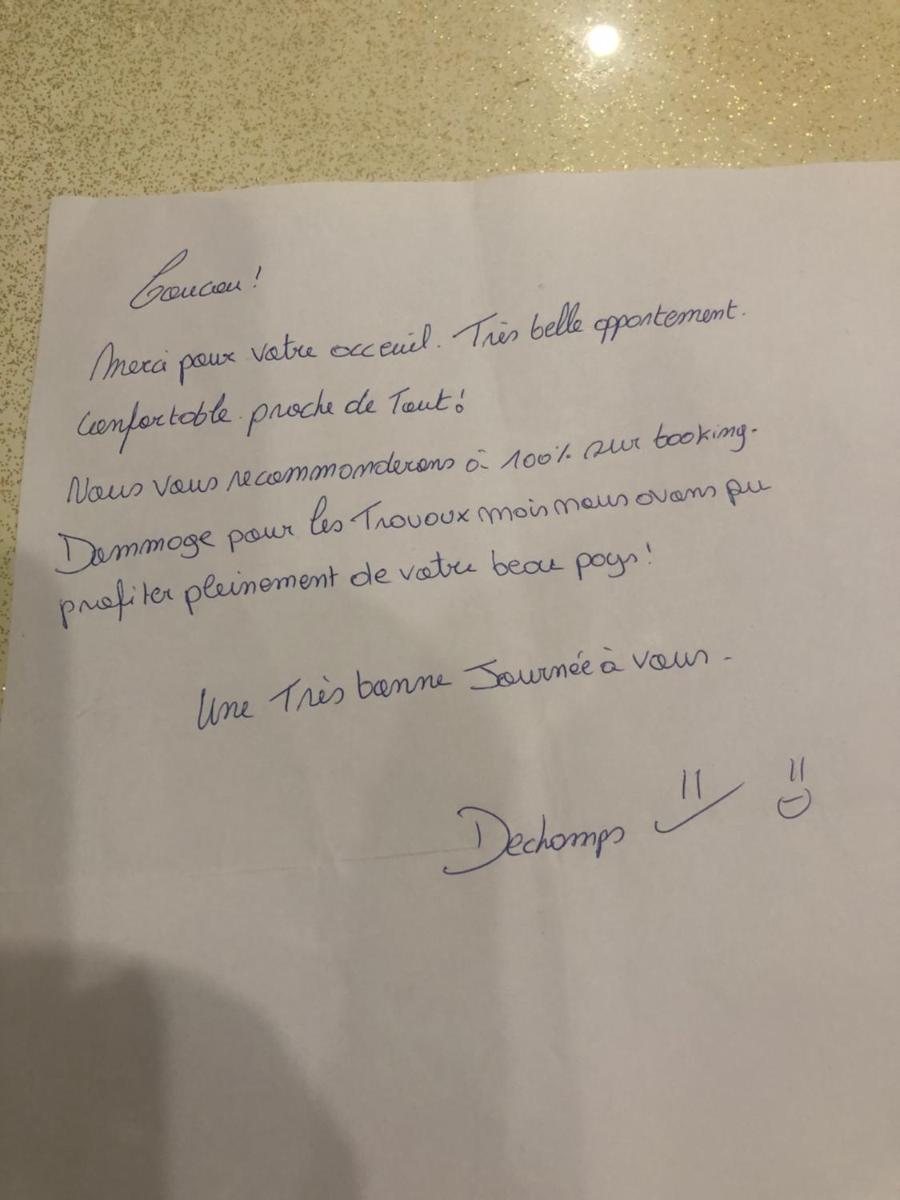 Coucou!
Merci pour votre acceuil. Très belle appartement.
Confortable proche de Tout!
Nous vous recommanderons à 100% sur booking.
Dammage pour les Travaux mais nous avons pu
profiter pleinement de votre beau pays!
Une Très bonne Journée à vous.
Dechamps